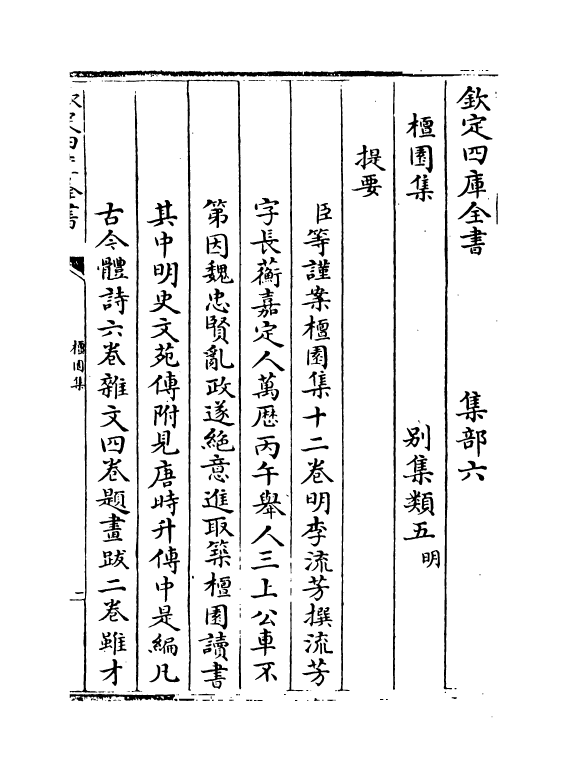 欽定四庫全書　集部六
檀園集　別集類五明
提要
臣等謹案檀園集十二卷明李流芳撰流芳
字長蘅嘉定人萬歷丙午舉人三上公車不
第因魏忠賢亂政遂絶意進取築檀園讀書
其中明史文苑傳附見唐時升傳中是編凡
古今體詩六卷雜文四卷題畫跋二卷雖才
欽定四庫全書
檀園集